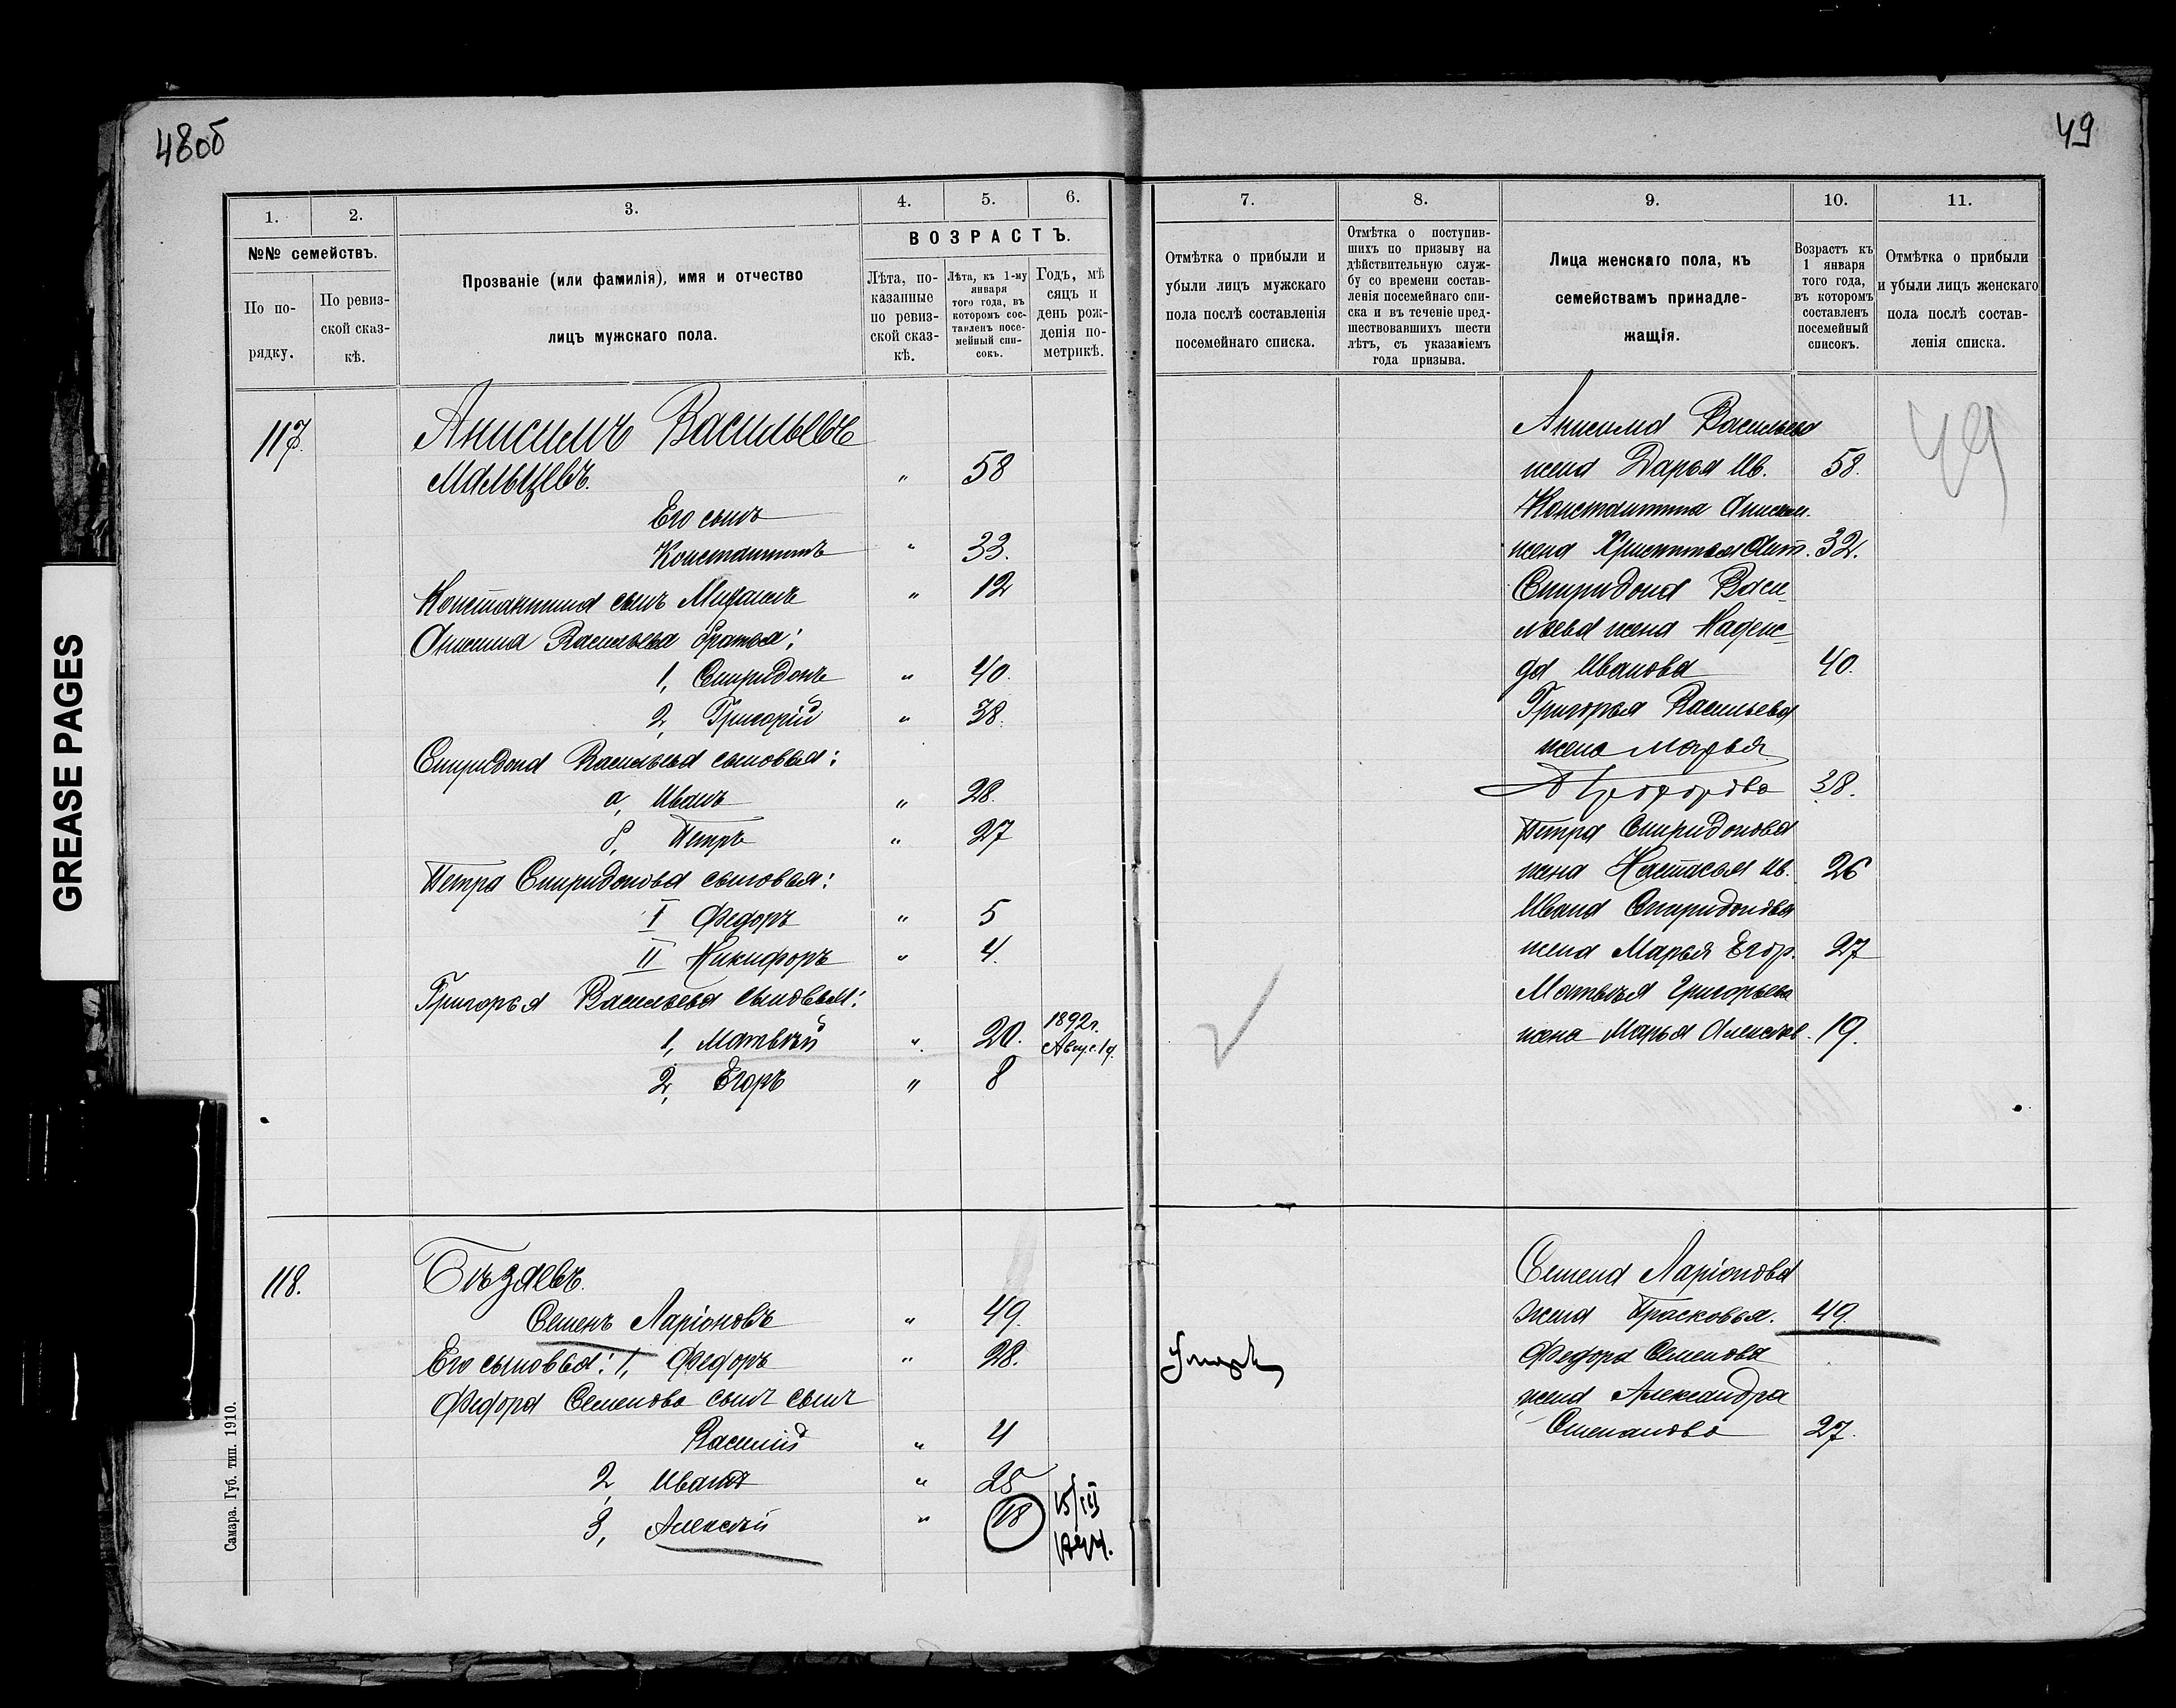 48об
49
GREASE PAGES
1.
2.
3.
4.
5.
6.
№№ семействъ.
По по-
рядку.
По ревиз-
ской сказ-
кѣ.
Прозваніе (или фамилія), имя и отчество
лицъ мужскаго пола.
ВОЗРАСТЪ.
Лѣта, по-
казанные
по ревиз-
ской сказ-
кѣ.
Лѣта, къ 1-му
января
того года, въ
которомъ сос-
тавленъ посе-
мейный спи-
сокъ.
Годъ, мѣ
сяцъ и
день рож-
денія по-
метрикѣ.
117.
Анисимъ Васильевъ
Мальцевъ. " 58
Его сынъ
Константинъ " 33.
Константина сынъ Михаилъ " 12
Анисима Васильева братья:
1, Спиридонъ " 40.
2, Григорій " 38.
Спиридона Васильева сыновья:
а, Иванъ " 28.
б, Петръ " 27
Петра Спиридонова сыновья:
I Федоръ " 5
II Никифоръ " 4.
Григорья Васильева сыновья:
1, Матвѣй " 20. 1892г.
Август. 19.
2, Егоръ " 8
118.
Бѣзяевъ.
Семенъ Ларіоновъ " 49.
Его сыновья: 1, Федоръ " 28.
Федора Семенова сынъ сынъ
Василій " 4
2, Иванъ " 25
3, Алексѣй " 18 15/III
Самара. Губ. тип. 1910.
7.
8.
9.
10.
11.
Отмѣтка о прибыли и
убыли лицъ мужскаго
пола послѣ составленія
посемейнаго списка.
Отмѣтка о поступив-
шихъ по призыву на
дѣйствительную служ-
бу со времени состав-
ленія посемейнаго спи-
ска и въ теченіе пред-
шествовавшихъ шести
лѣтъ, съ указаніемъ
года призыва.
Лица женскаго пола, къ
семействамъ принадле-
жащія.
Возрастъ къ
1 января
того года,
въ которомъ
составленъ
посемейный
списокъ.
Отмѣтка о прибыли
и убыли лицъ женскаго
пола послѣ состав-
ленія списка.
Анисима Васильева
жена Дарья Ив. 58.
49
Константина Анисим.
жена Христинья Ант. 32.
Спиридона Васи-
льева жена Надеж-
да Иванова 40.
Григорья Васильева
жена Марья
Прохорова 38.
Петра Спиридонова
жена Настасья Ив. 26
Ивана Спиридонова
жена Марья Егор. 27
Матвѣя Григорьева
жена Марья Алексѣев. 19.
Семена Ларіонова
жена Прасковья. 49.
Федора Семенова
жена Александра
Степанова 27.